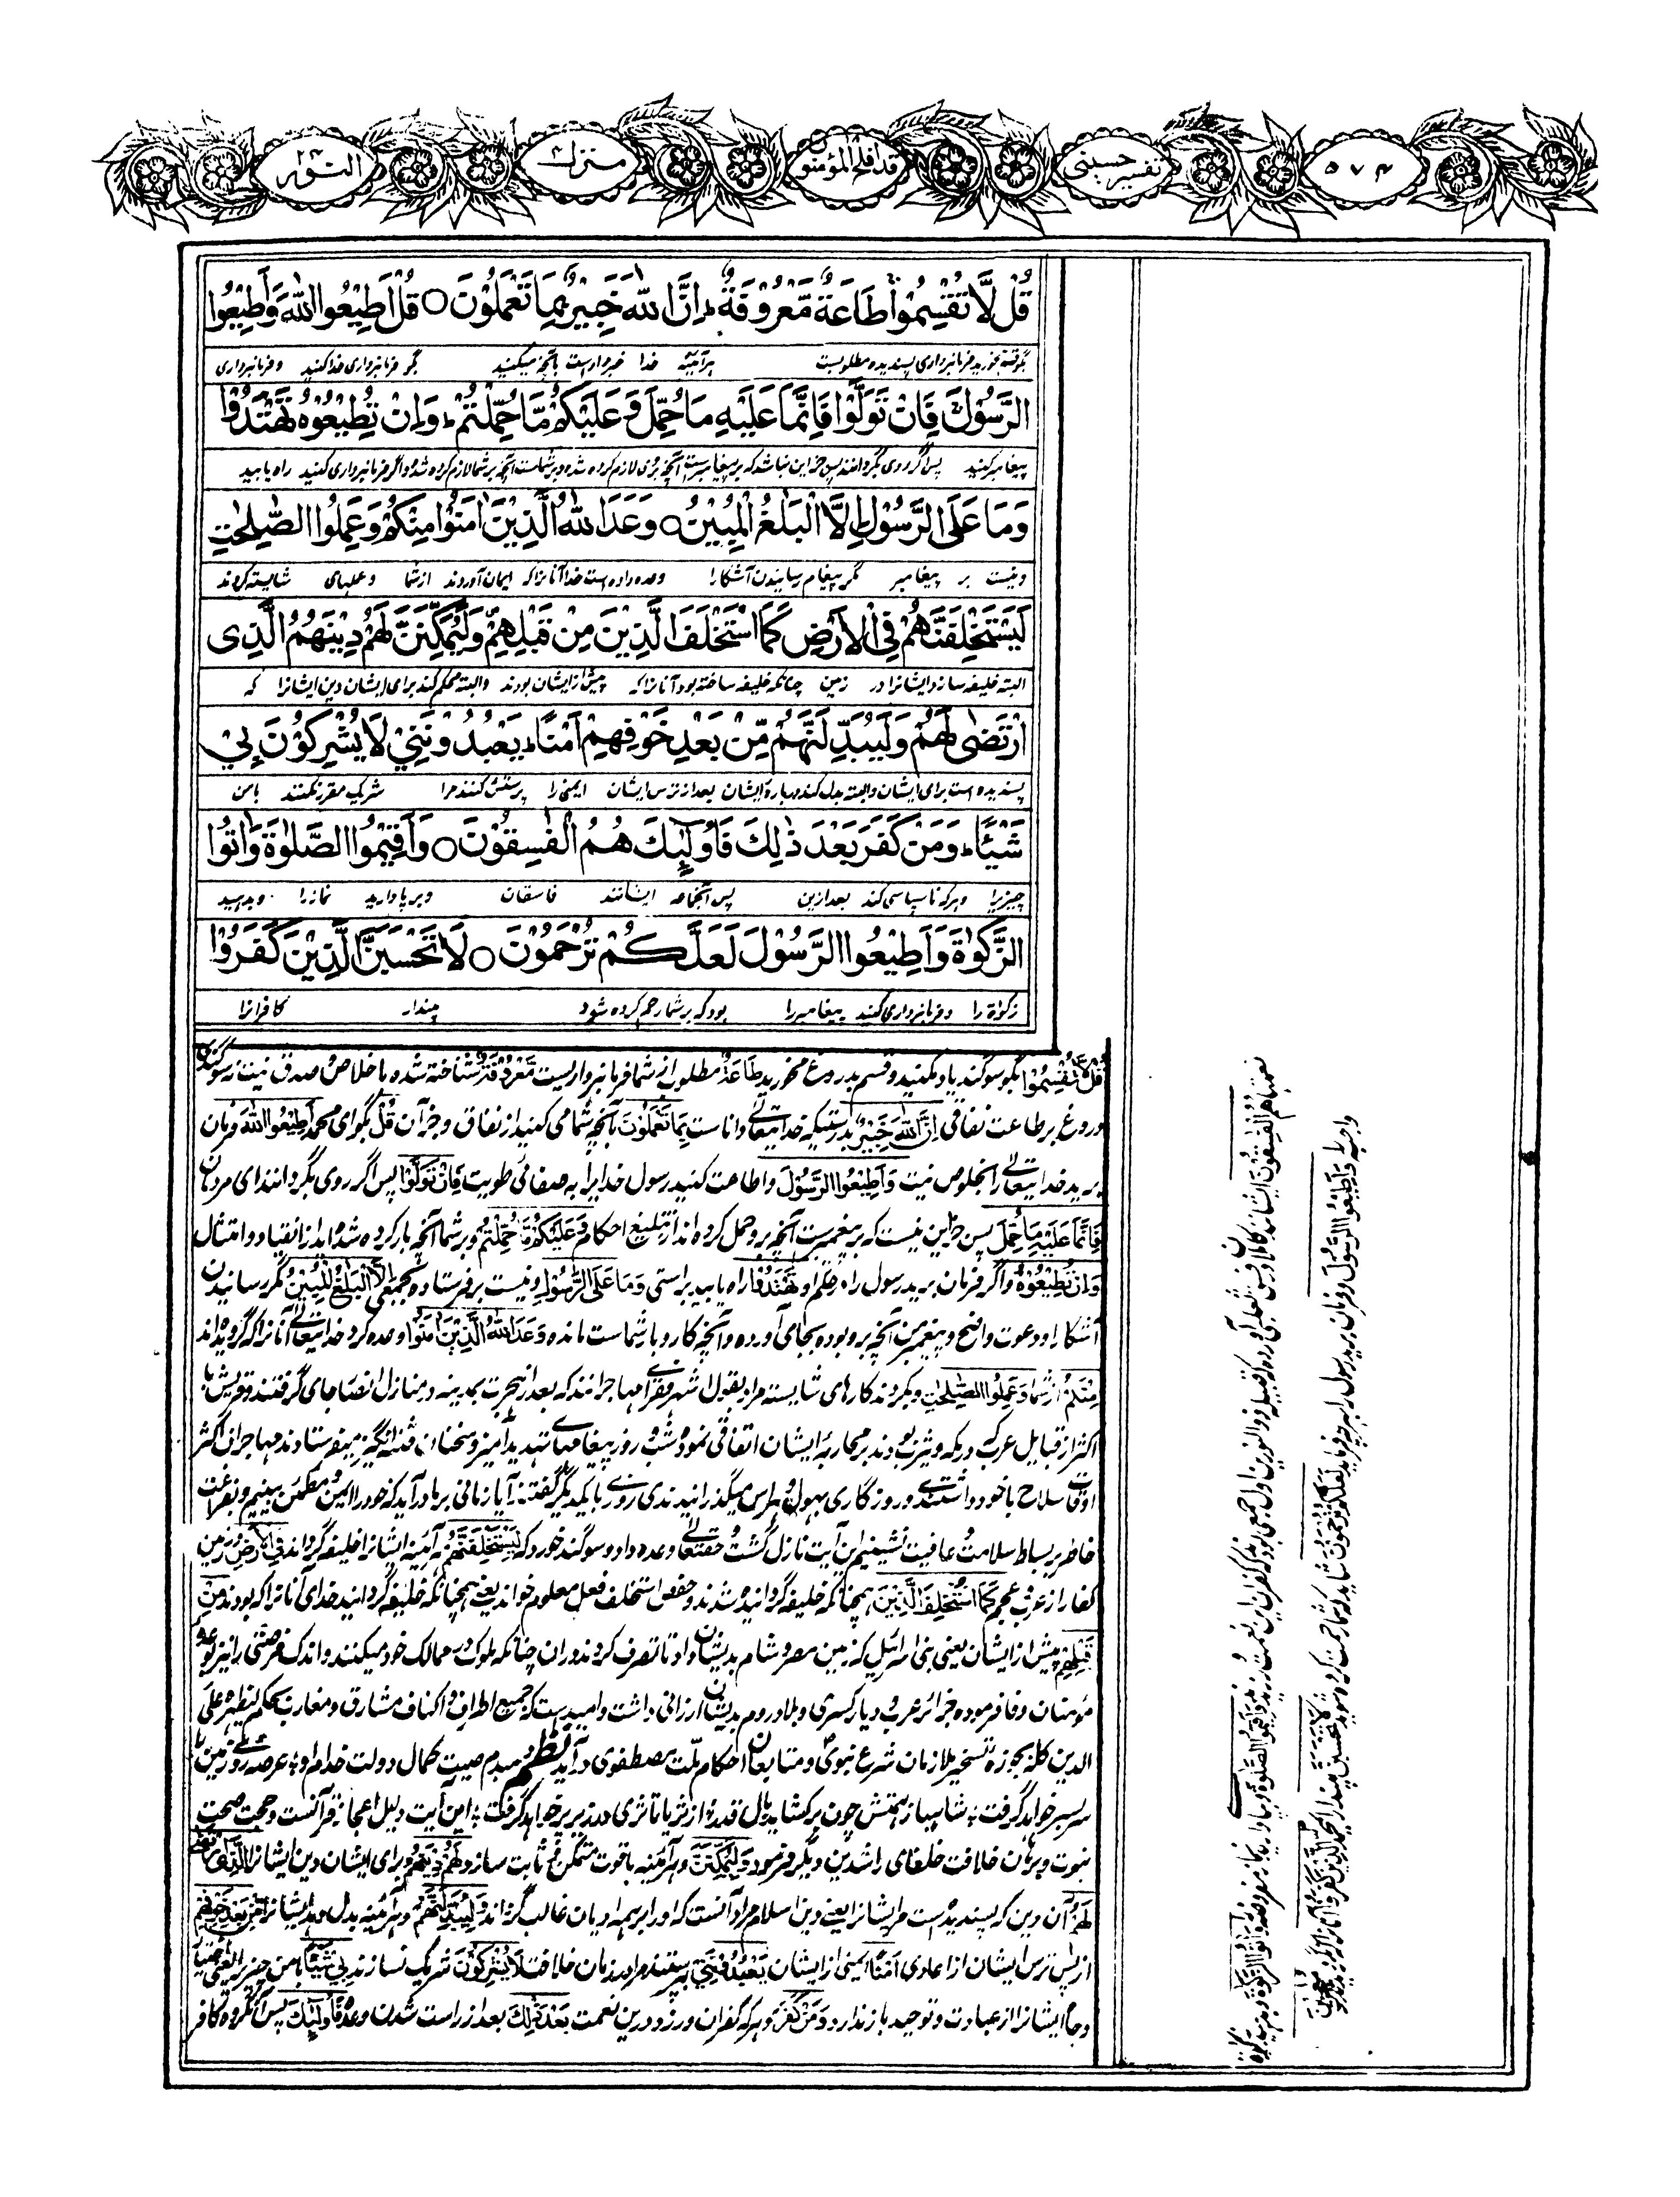 ۵۷۴ تفسیر حسینی قد افلح المؤمنون منزل۴ النور۲۴
قُلْ لَّا تُقْسِمُوْا طَاعَةٌ مَّعْرُوْفَةٌ ؕ اِنَّ اللّٰهَ خَبِيْرٌۢ بِمَا تَعْمَلُوْنَ ○ قُلْ اَطِيْعُوا اللّٰهَ وَاَطِيْعُوا
بگو قسم مخورید فرمانبرداری پسندیده مطلوبست هرآئینه خدا خبردارست بآنچه میکنید بگو فرمانبرداری خدا کنید و فرمانبرداری
الرَّسُوْلَ فَاِنْ تَوَلَّوْا فَاِنَّمَا عَلَيْهِ مَا حُمِّلَ وَعَلَيْكُمْ مَّا حُمِّلْتُمْ ؕ وَاِنْ تُطِيْعُوْهُ تَهْتَدُوْا
پیغامبر کنید پس اگر روی بگردانند پس جز این نباشد که بر پیغامبرست آنچه بروی لازم کرده شده و بر شماست آنچه بر شما لازم کرده شد و اگر فرمانبرداری کنید راه یابید
وَمَا عَلَى الرَّسُوْلِ اِلَّا الْبَلٰغُ الْمُبِيْنُ ○ وَعَدَ اللّٰهُ الَّذِيْنَ اٰمَنُوْا مِنْكُمْ وَعَمِلُوا الصّٰلِحٰتِ
و نیست بر پیغامبر مگر پیغام رسانیدن آشکارا وعده داده است خدا آنانرا که ایمان آوردند از شما و عملهای شایسته کردند
لَيَسْتَخْلِفَنَّهُمْ فِى الْاَرْضِ كَمَا اسْتَخْلَفَ الَّذِيْنَ مِنْ قَبْلِهِمْ وَلَيُمَكِّنَنَّ لَهُمْ دِيْنَهُمُ الَّذِى
البته خلیفه سازد ایشانرا در زمین چنانکه خلیفه ساخته بود آنانرا که پیش از ایشان بودند و البته محکم کند برای ایشان دین ایشانرا که
ارْتَضٰى لَهُمْ وَلَيُبَدِّلَنَّهُمْ مِّنْۢ بَعْدِ خَوْفِهِمْ اَمْنًا ؕ يَعْبُدُوْنَنِىْ لَا يُشْرِكُوْنَ بِىْ
پسندیده است برای ایشان و البته بدل کند در باره ایشان بعد از ترس ایشان ایمنی را پرستش کنند مرا شریک مقرر نکنند با من
شَيْـًٔا ؕ وَمَنْ كَفَرَ بَعْدَ ذٰلِكَ فَاُولٰٓئِكَ هُمُ الْفٰسِقُوْنَ ○ وَاَقِيْمُوا الصَّلٰوةَ وَاٰتُوا
چیزیرا و هرکه ناسپاسی کند بعد ازین پس آنجماعه ایشانند فاسقان و برپا دارید نماز را و بدهید
الزَّكٰوةَ وَاَطِيْعُوا الرَّسُوْلَ لَعَلَّكُمْ تُرْحَمُوْنَ ○ لَا تَحْسَبَنَّ الَّذِيْنَ كَفَرُوْا
زکوة را و فرمانبرداری کنید پیغامبر را بود که بر شما رحم کرده شود مپندار کافرانرا
قُلْ لَّا تُقْسِمُوْا بگو سوگند یاد مکنید و قسم بدروغ مخورید طَاعَةٌ مطلوب از شما فرمانبرداریست مَّعْرُوْفَةٌ شناخته شده باخلاص و صدق نیت نه سوگند
دروغ بر طاعت نفاقی اِنَّ اللّٰهَ خَبِيْرٌ بدرستیکه خدایتعالی داناست بِمَا تَعْمَلُوْنَ بآنچه شما می کنید از نفاق و جز آن قُلْ بگو ای محمد اَطِيْعُوا اللّٰهَ فرمان
برید خدایتعالی را بخلوص نیت وَاَطِيْعُوا الرَّسُوْلَ و اطاعت کنید رسول خدایرا به صفائی طویت فَاِنْ تَوَلَّوْا پس اگر روی بگردانند ای مردمان
فَاِنَّمَا عَلَيْهِ مَا حُمِّلَ پس جز این نیست که بر پیغمبرست آنچه برو حمل کرده اند از تبلیغ احکام وَعَلَيْكُمْ مَّا حُمِّلْتُمْ و بر شما آنچه بار کرده شده اید از انقیاد و امتثال
وَاِنْ تُطِيْعُوْهُ و اگر فرمان برید رسول را در حکم او تَهْتَدُوْا راه یابید براستی وَمَا عَلَى الرَّسُوْلِ و نیست بر فرستاده بجمیعی اِلَّا الْبَلٰغُ الْمُبِيْنُ مگر رسانیدن
آشکارا و دعوت واضح و پیغمبر من آنچه برو بوده بجای آورده و آنچه کار و بار شماست مانده وَعَدَ اللّٰهُ الَّذِيْنَ اٰمَنُوْا وعده کرد خدایتعالی آنانرا که گرویده اند
مِنْكُمْ از شما وَعَمِلُوا الصّٰلِحٰتِ و بکردند کارهای شایسته مراد بقول اشهر فقرای مهاجرانند که بعد از هجرت بمدینه در منازل انصار جای گرفتند و قریش با
اکثر از قبایل عرب که در مکه و یثرب بودند بر محاربهٔ ایشان اتفاق نموده شب و روز پیغامهای تهدیدآمیز و سخنان فتنه انگیز میفرستادند مهاجران اکثر
اوقات سلاح با خود داشتندی و روزگاری بهول و هراس میگذرانیدندی روزی با یکدیگر گفتند آیا زمانی بر ما درآید که خود را ایمن و مطمئن بینیم و بفراغت
خاطر بر بساط سلامت و عافیت نشینیم این آیت نازل گشت و حقتعالی وعده داد و سوگند خورد که لَيَسْتَخْلِفَنَّهُمْ هرآئینه ایشانرا خلیفه گرداند فِى الْاَرْضِ در زمین
کفار از عرب و عجم كَمَا اسْتُخْلِفَ الَّذِيْنَ همچنانکه خلیفه گردانیده شدند و حفص استخلف فعل معلوم خواند یعنی همچنانکه خلیفه گردانید خدای آنانرا که بودند مِنْ
قَبْلِهِمْ پیش از ایشان یعنی بنی اسرائیل که زمین مصر و شام بدیشان داد تا تصرف کردند در ان چنانکه ملوک در ممالک خود میکنند و اندک فرصتی را نیز بوعده
مؤمنان وفا فرموده جزائر عرب و دیار کسری و بلاد روم بدیشان ارزانی داشت و امیدست که جمیع اطراف و اکناف مشارق و مغارب بحکم لیظهره علی
الدین کله بحوزهٔ تسخیر ملازمان شرع نبوی و متابعان احکام ملت مصطفوی درآید نظم دمبدم صیت کمال دولت خدام او * عرصه روی زمین را
سربسر خواهد گرفت * شاهباز همتش چون برکشاید بال قدر * از ثریا تا ثری در زیر پر خواهد گرفت * این آیت دلیل اعجاز قرآنست و حجت صحت
نبوت و برهان خلافت خلفای راشدین دیگر فرمود وَلَيُمَكِّنَنَّ و هرآئینه باقوت و متمکن و ثابت سازد لَهُمْ دِيْنَهُمُ برای ایشان دین ایشانرا الَّذِى ارْتَضٰى
لَهُمْ آن دین که پسندیده است مر ایشانرا یعنی دین اسلام مراد آنست که او را بر همه ادیان غالب گرداند وَلَيُبَدِّلَنَّهُمْ و هرآئینه بدل دهد ایشانرا مِنْ بَعْدِ خَوْفِهِمْ
از پس ترس ایشان از اعادی اَمْنًا ایمنی از ایشان يَعْبُدُوْنَنِىْ بپرستند مرا در زمان خلافت لَا يُشْرِكُوْنَ شریک نسازند بِىْ شَيْـًٔا با من چیزیرا یعنی
و جاه ایشانرا از عبادت و توحید باز ندارد وَمَنْ كَفَرَ و هرکه کفران ورزد درین نعمت بَعْدَ ذٰلِكَ بعد از راست شدن وعده فَاُولٰٓئِكَ پس آنگروه کافر
نعمتها هُمُ الْفٰسِقُوْنَ ایشانند کاملان در فسق ثعلبی آورده که قبیله ذوالنورین اول جمعی بودند که کفران این نعمت ورزیدند وَاَقِيْمُوا الصَّلٰوةَ و بپا دارید نماز مفروضه وَاٰتُوا الزَّكٰوةَ و بدهید زکوة
واجبه وَاَطِيْعُوا الرَّسُوْلَ و فرمان برید رسول را بهر چه فرماید لَعَلَّكُمْ تُرْحَمُوْنَ شاید که شما رحمت کرده شوید لَا تَحْسَبَنَّ مپندار ای محمد الَّذِيْنَ كَفَرُوْا آنانرا که نگرویدند